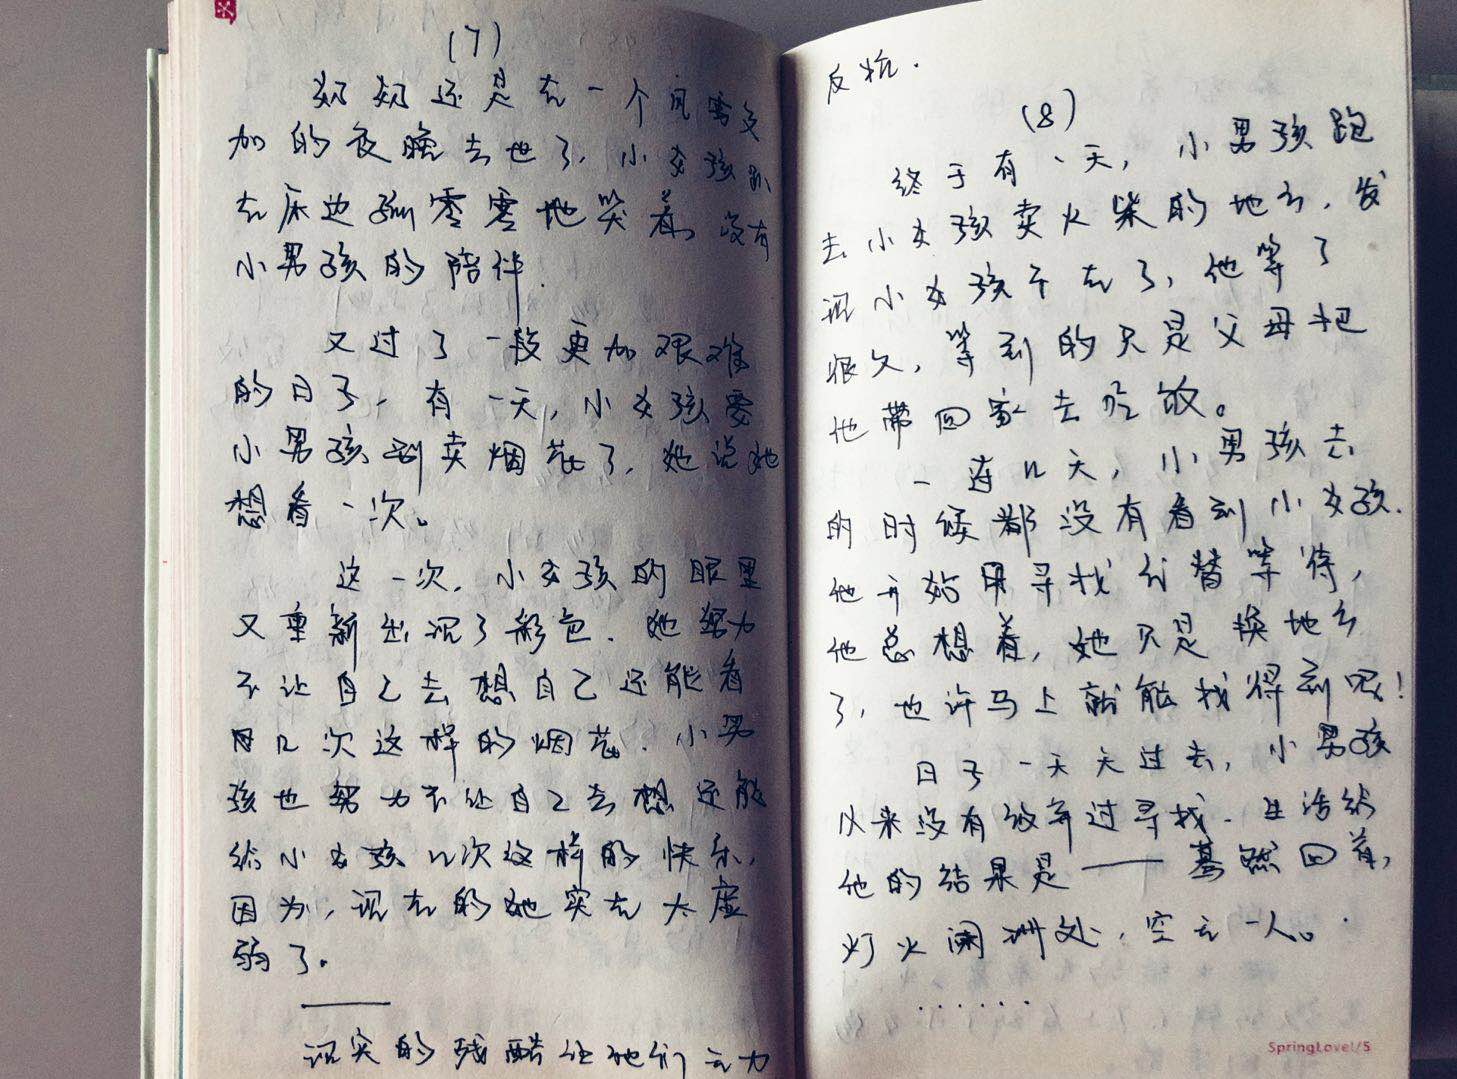 (7)
奶奶还是在一个风雪交
加的夜晚去世了,小女孩趴
在床边孤零零地哭着,没有
小男孩的陪伴.
又过了一段更加艰难
的日子,有一天,小女孩要
小男孩别卖烟花了,她说她
想看一次。
这一次,小女孩的眼里
又重新出现了彩色.她努力
不让自己去想自己还能看
几次这样的烟花.小男
孩也努力不让自己去想还能
给小女孩几次这样的快乐,
因为,现在的她实在太虚
弱了。
——
现实的残酷让他们无力
反抗.
(8)
终于有一天,小男孩跑
去小女孩卖火柴的地方,发
现小女孩不在了,他等了
很久,等到的只是父母把
他带回家去吃饭。
一连几天,小男孩去
的时候都没有看到小女孩.
他开始用寻找代替等待,
他总想着,她只是换地方
了,也许马上就能找得到呢!
日子一天天过去,小男孩
从来没有放弃过寻找.生活给
他的结果是——蓦然回首,
灯火阑珊处,空无一人。
......
SpringLove/5